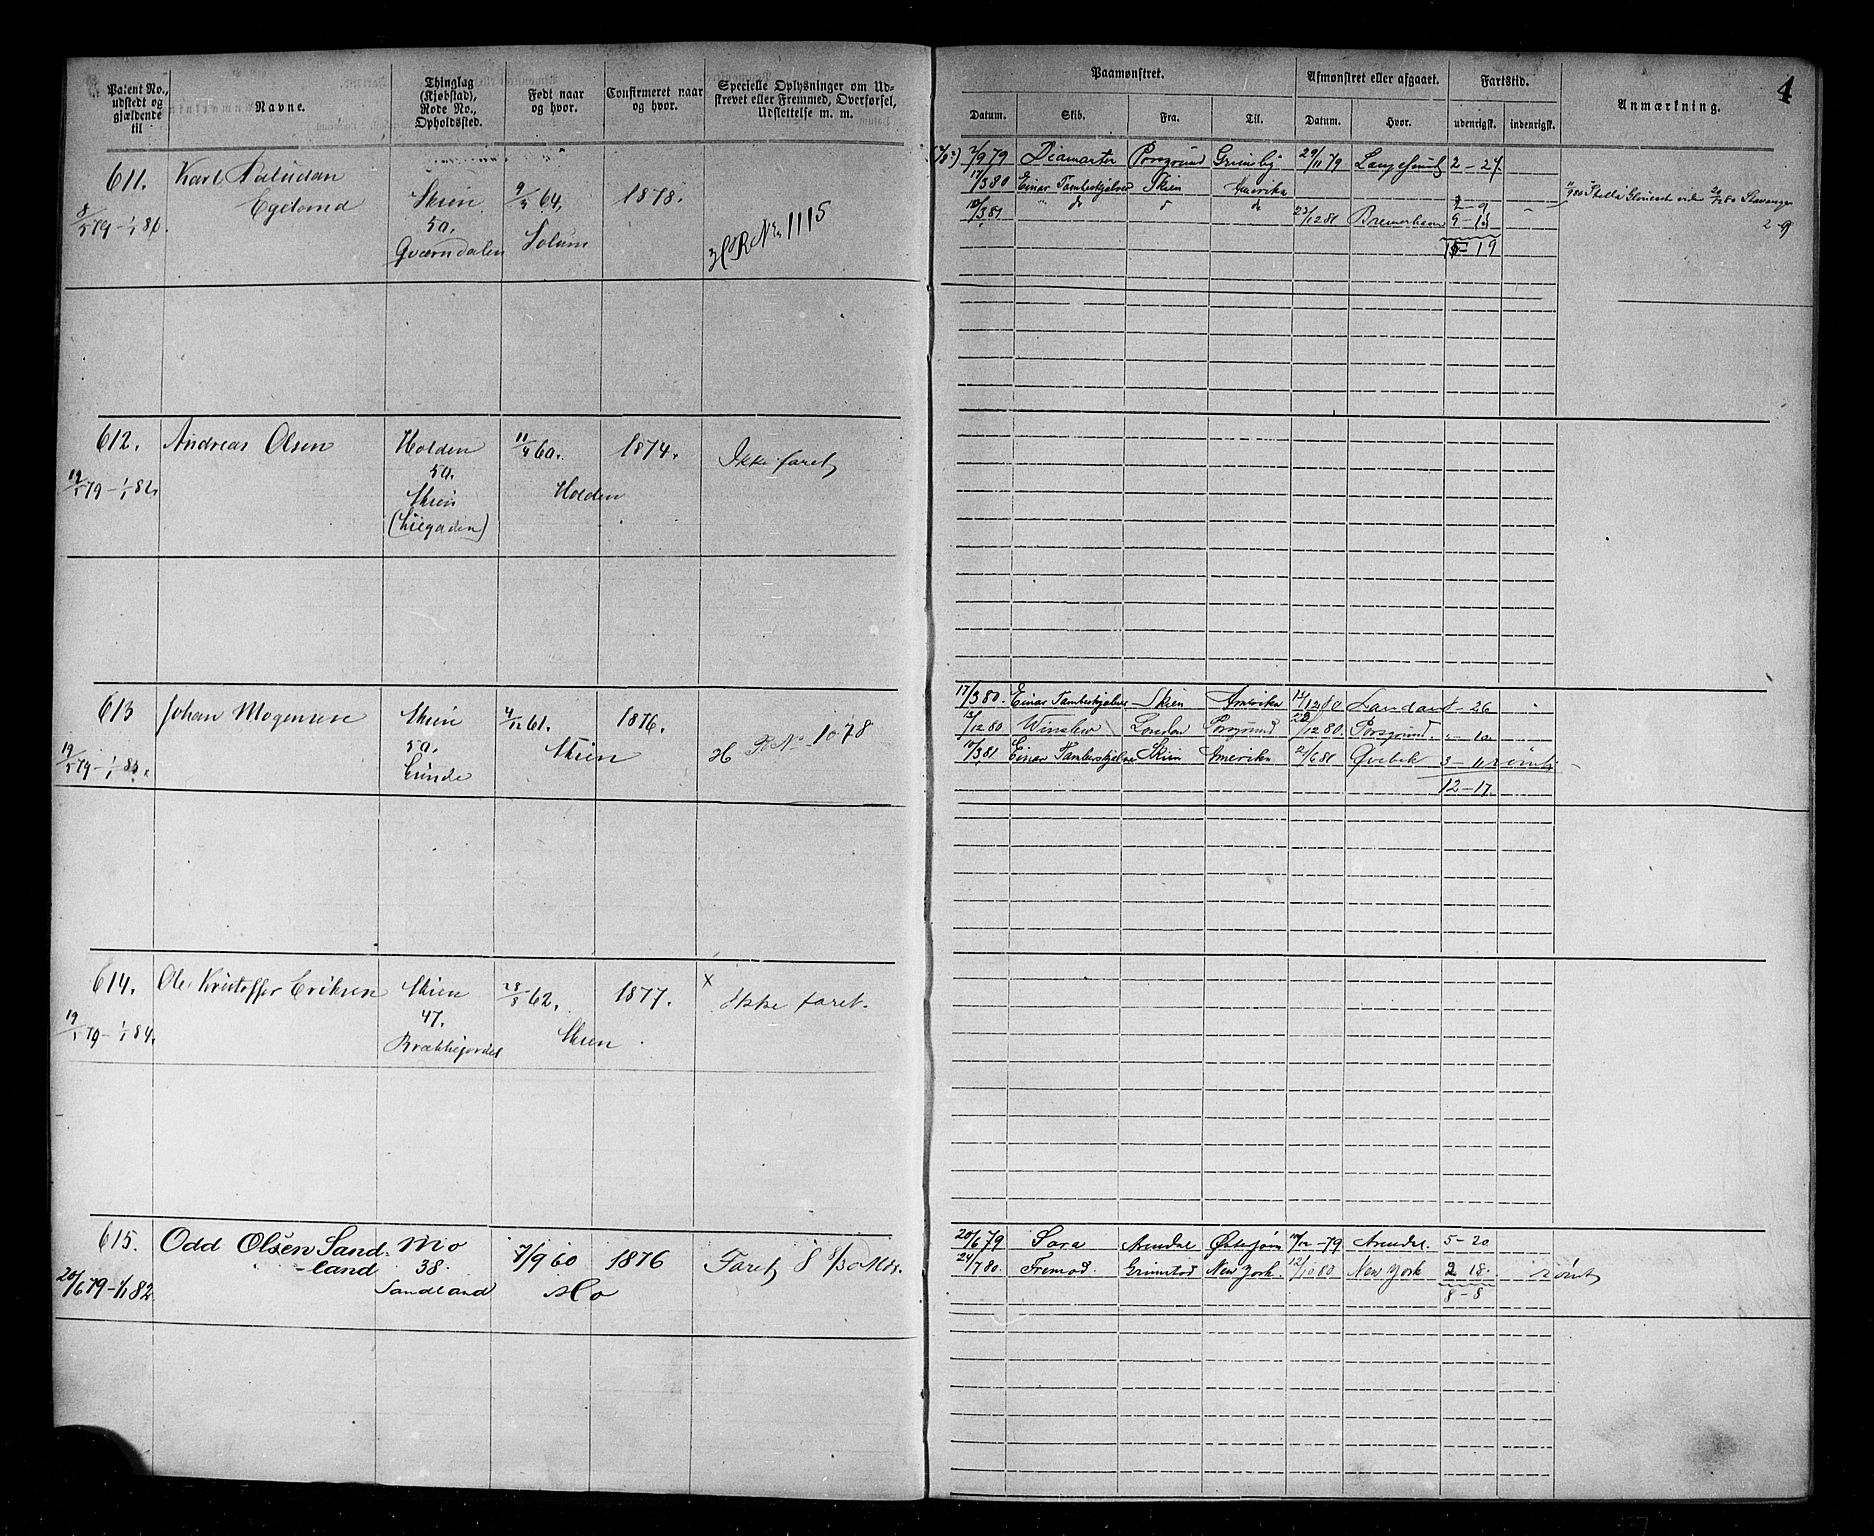 Patent No., udstedt og gjældende til
Navne.
Thinglag (Kjøbstad), Rode No., Opholdssted.
Født naar og hvor.
Confirmeret naar og hvor.
Specielle Oplysninger om Udskrevet eller Fremmed, Overførsel, Udslettelse m. m.
Paamønstret.
Datum. Skib. Fra. Til.
Afmønstret eller afgaaet.
Datum. Hvor.
Fartstid.
udenrigst. indenrigst.
Anmærkning.
4
611. Karl Paludan Egelund
8/5 79 – 1/1 86.
Skien
50.
Gværndalen
9/4 64,
Solum
1878.
H R No 1115
2/9 79 Diamanten Porsgrund Grimsby 29/11 79 Langesund 2 – 27.
17/3 80 Einar Tambeskjelver Skien Amerika 7 – 9
10/3 81 " d d d 23/12 81 Bremerhaven 9 – 13
15 – 19
Stella 80 Stavanger
2-9
612. Andreas Olsen
19/5 79 – 1/1 82
Holden
50.
Skien
(Liegaden)
11/4 60.
Holden
1874.
Ikke faret
613 Johan Mogensen
19/5 79 – 1/1 83.
Skien
50.
Lunde
4/12 61.
Skien
1876.
H R No 1078
17/3 80. Einar Tambeskjelver Skien Amerika 12/12 80 London 8 – 26
13/12 80 Winslow London Porsgrund 22/12 80. Porsgrund. " – 10
10/3 81 Einar Tambeskjelver Skien Amerika 21/6 81 Qvebek 3 – 11 rømt
12 – 17.
614. Ole Kristoffer Eriksen
19/5 79 – 1/1 84.
Skien
47.
Brækkejordet
28/8 62.
Skien
1877.
x
Ikke faret.
615. Odd Olsen Sandland
20/6 79 – 1/1 82
Mo
38.
Sandland
7/9 60
Mo
1876
Faret 8 8/30 Mdr.
20/6 79 Sara Arendal Østersjøen 10/12 – 79 Arendal. 5 – 20
24/7 80. Fremad. Grimstad New York. 12/10 80 New York 2 18. rømt
8 – 8